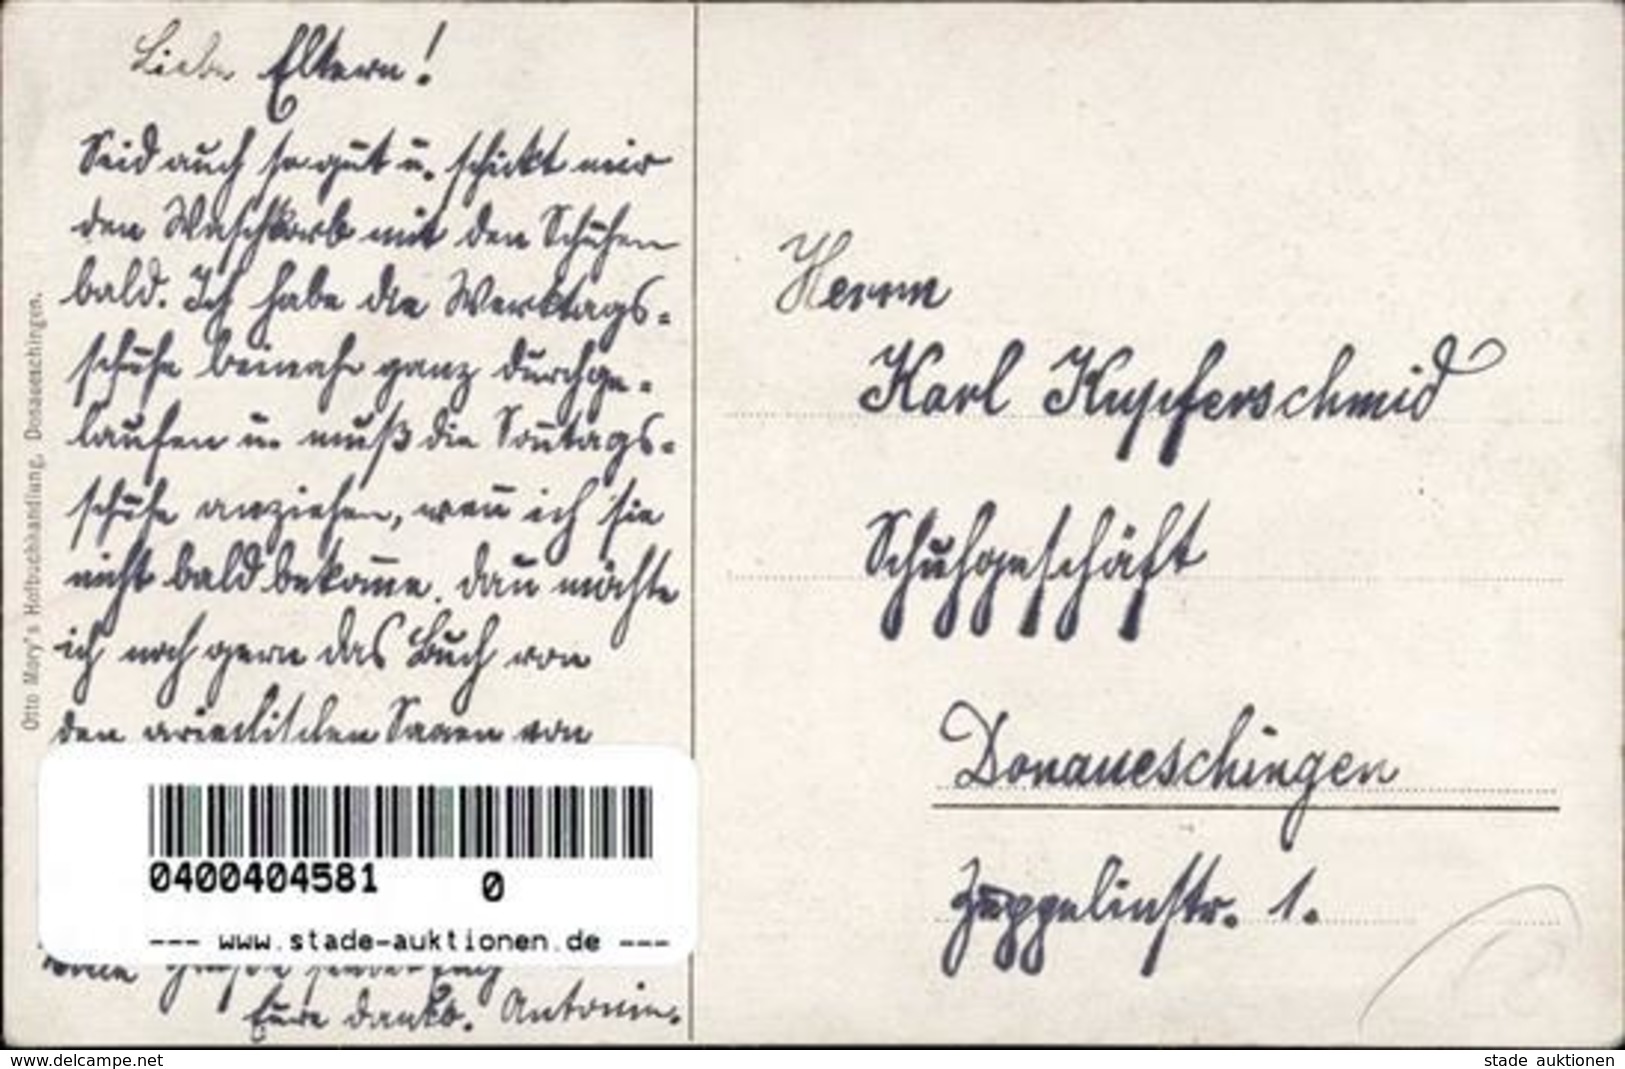 Liebe Eltern!
Seid auch so gut u. schickt mir
den Waschkorb mit den Schuhen
bald. Ich habe die Werktags=
schuhe beinahe ganz durchge=
laufen u. muß die Sontags=
schuhe anziehen, wen̄ ich sie
nicht bald bekom̄e. Dan̄ möchte
ich noch gern das Buch von
den griechischen Sagen von
Grüße sendet Euch
Eure dankb. Antonie.
Otto Mory's Hofbuchhandlung, Donaueschingen.
0400404581 0
--- www.stade-auktionen.de ---
Herrn
Karl Kupferschmid
Schuhgeschäft
Donaueschingen
Zeppelinstr. 1.
www.delcampe.net
stade auktionen